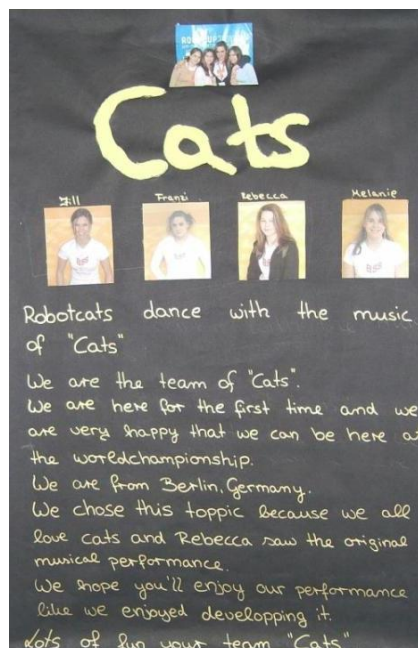 Cats
Jill Franzi Rebecca Melanie
Robotcats dance with the music
of "Cats"
We are the team of "Cats".
We are here for the first time and we
are very happy that we can be here at
the worldchampionship.
We are from Berlin, Germany.
We chose this toppic because we all
love cats and Rebecca saw the original
musical performance.
We hope you'll enjoy our performance
like we enjoyed developping it.
Lots of fun your team "Cats"